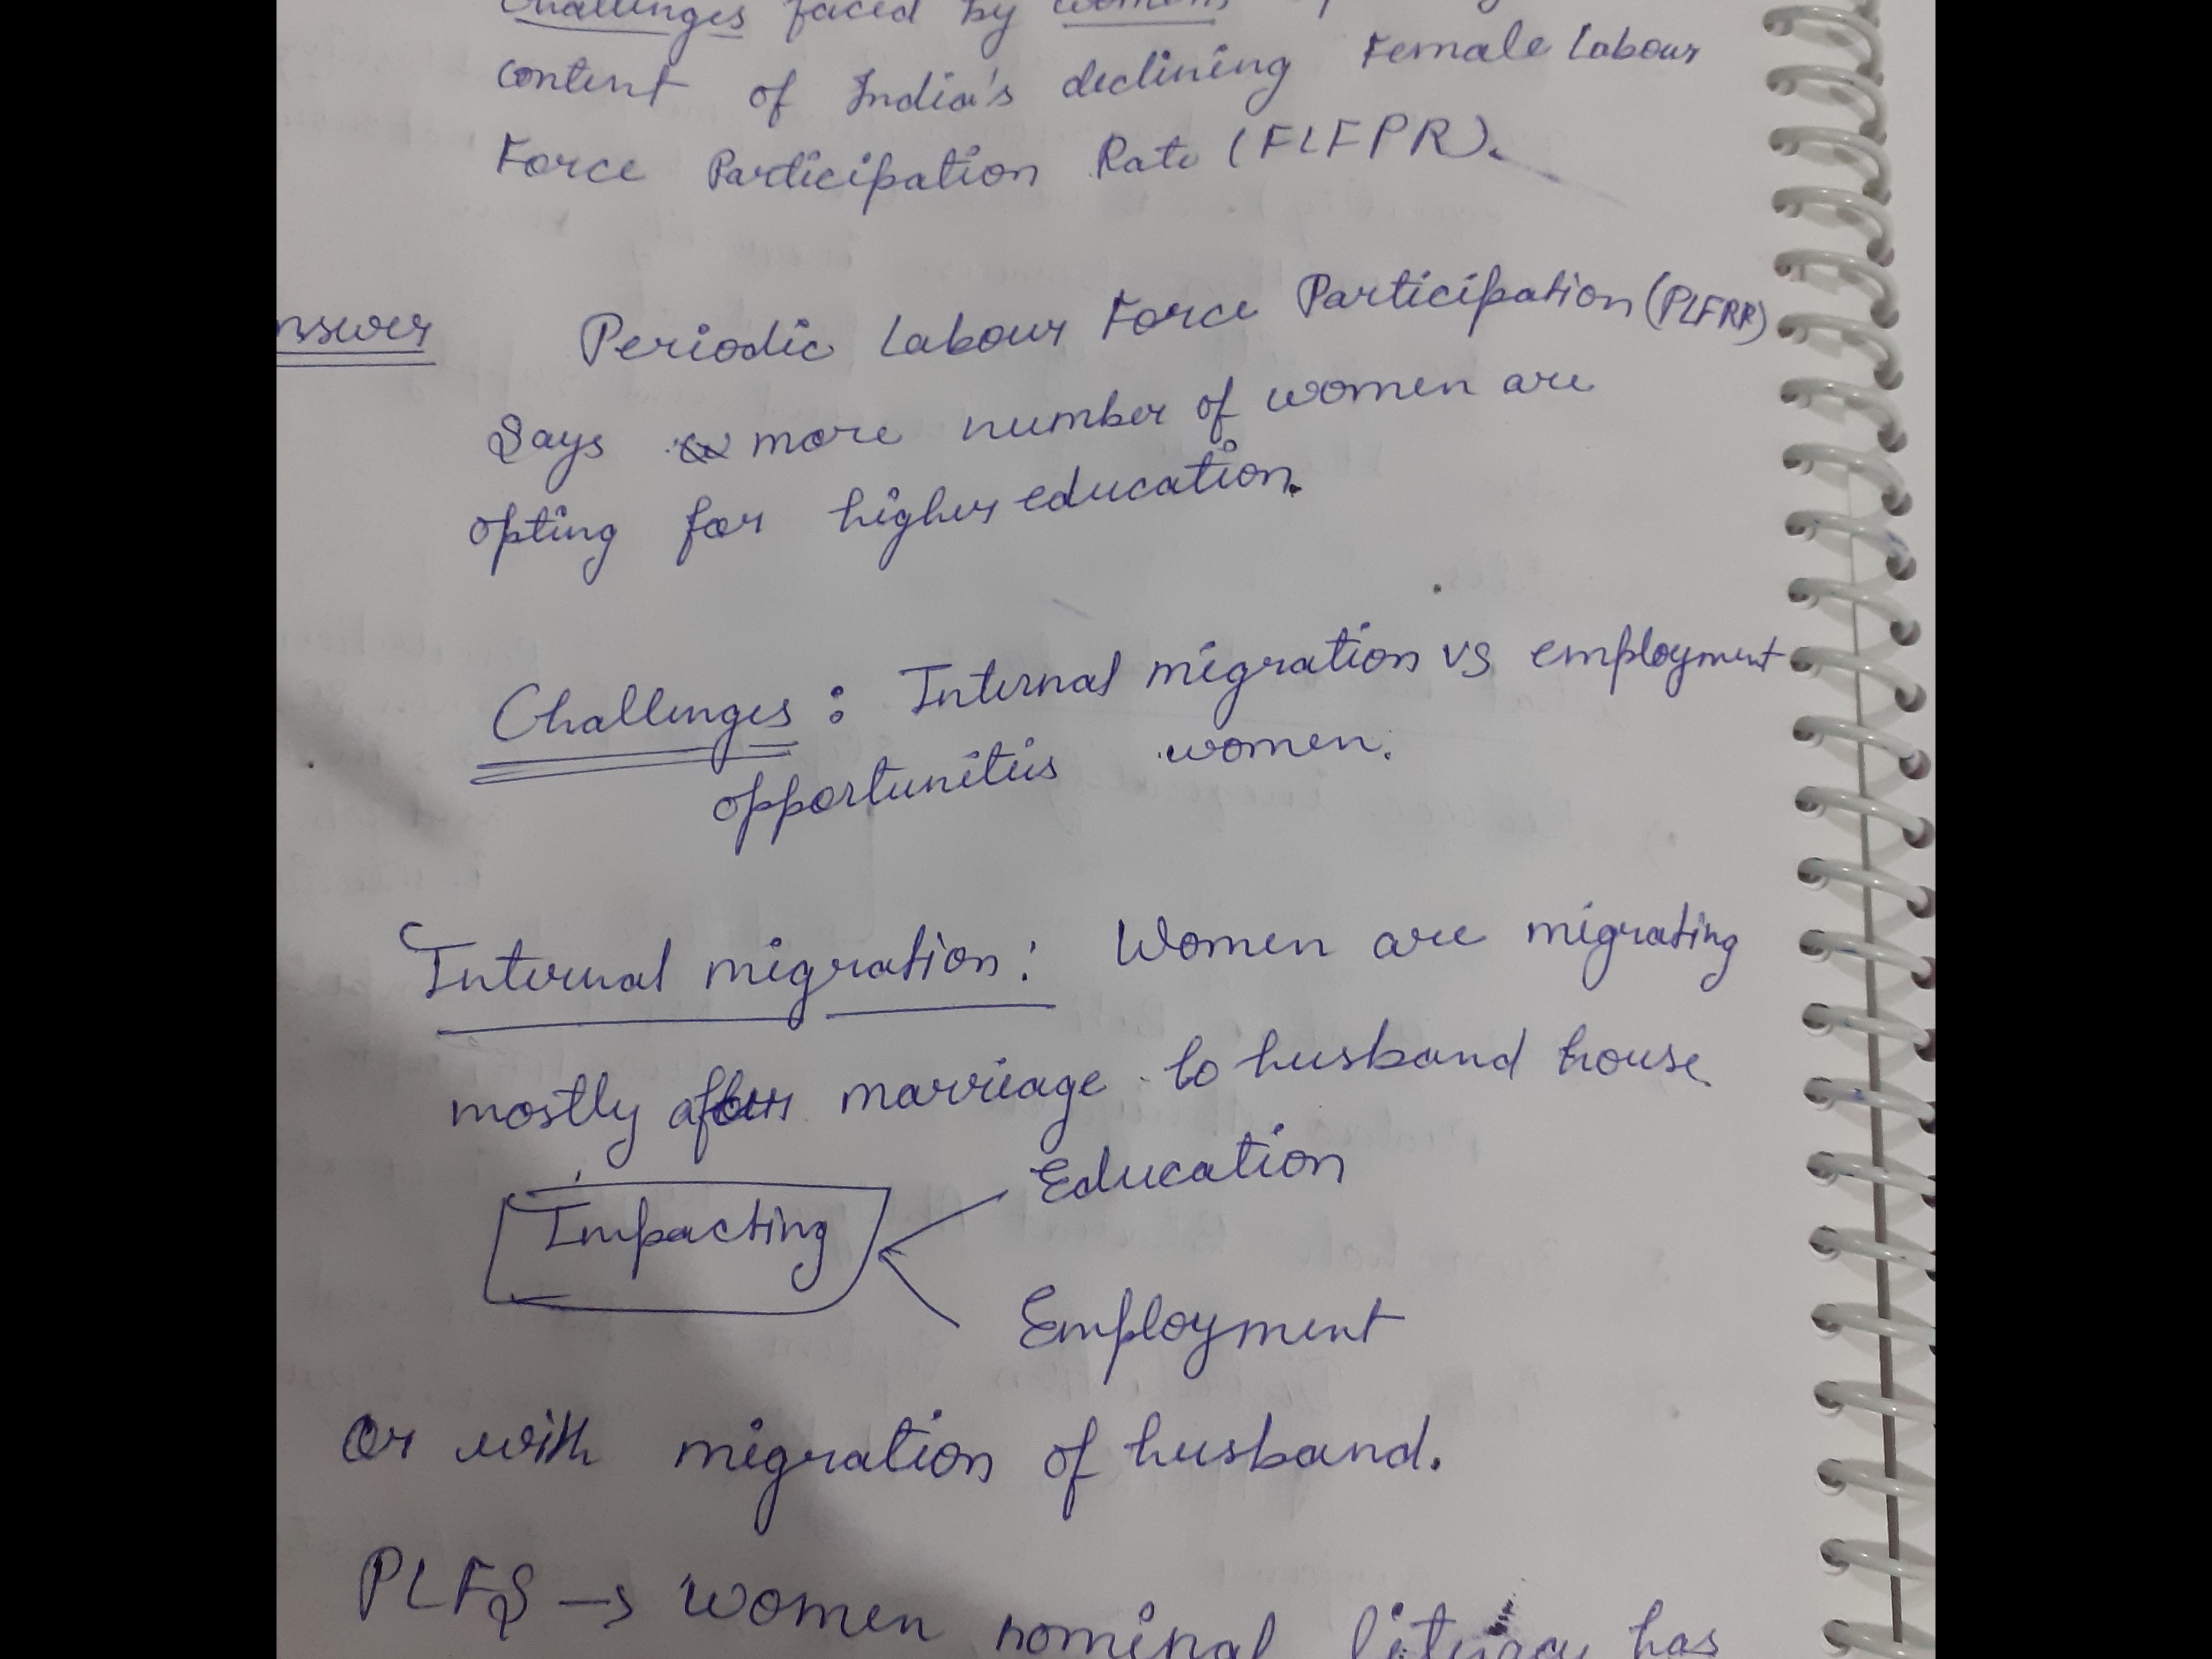 challenges faced by women,
content of India's declining Female Labour
Force Participation Rate (FLFPR).
nswer Periodic Labour Force Participation (PLFRR)
Says more number of women are
opting for higher education.
Challenges : Internal migration vs employment
opportunities women.
Internal migration : Women are migrating
mostly after marrieage to husband house.
Impacting Education
Employment
or with migration of husband.
PLFS → women nominal literacy has